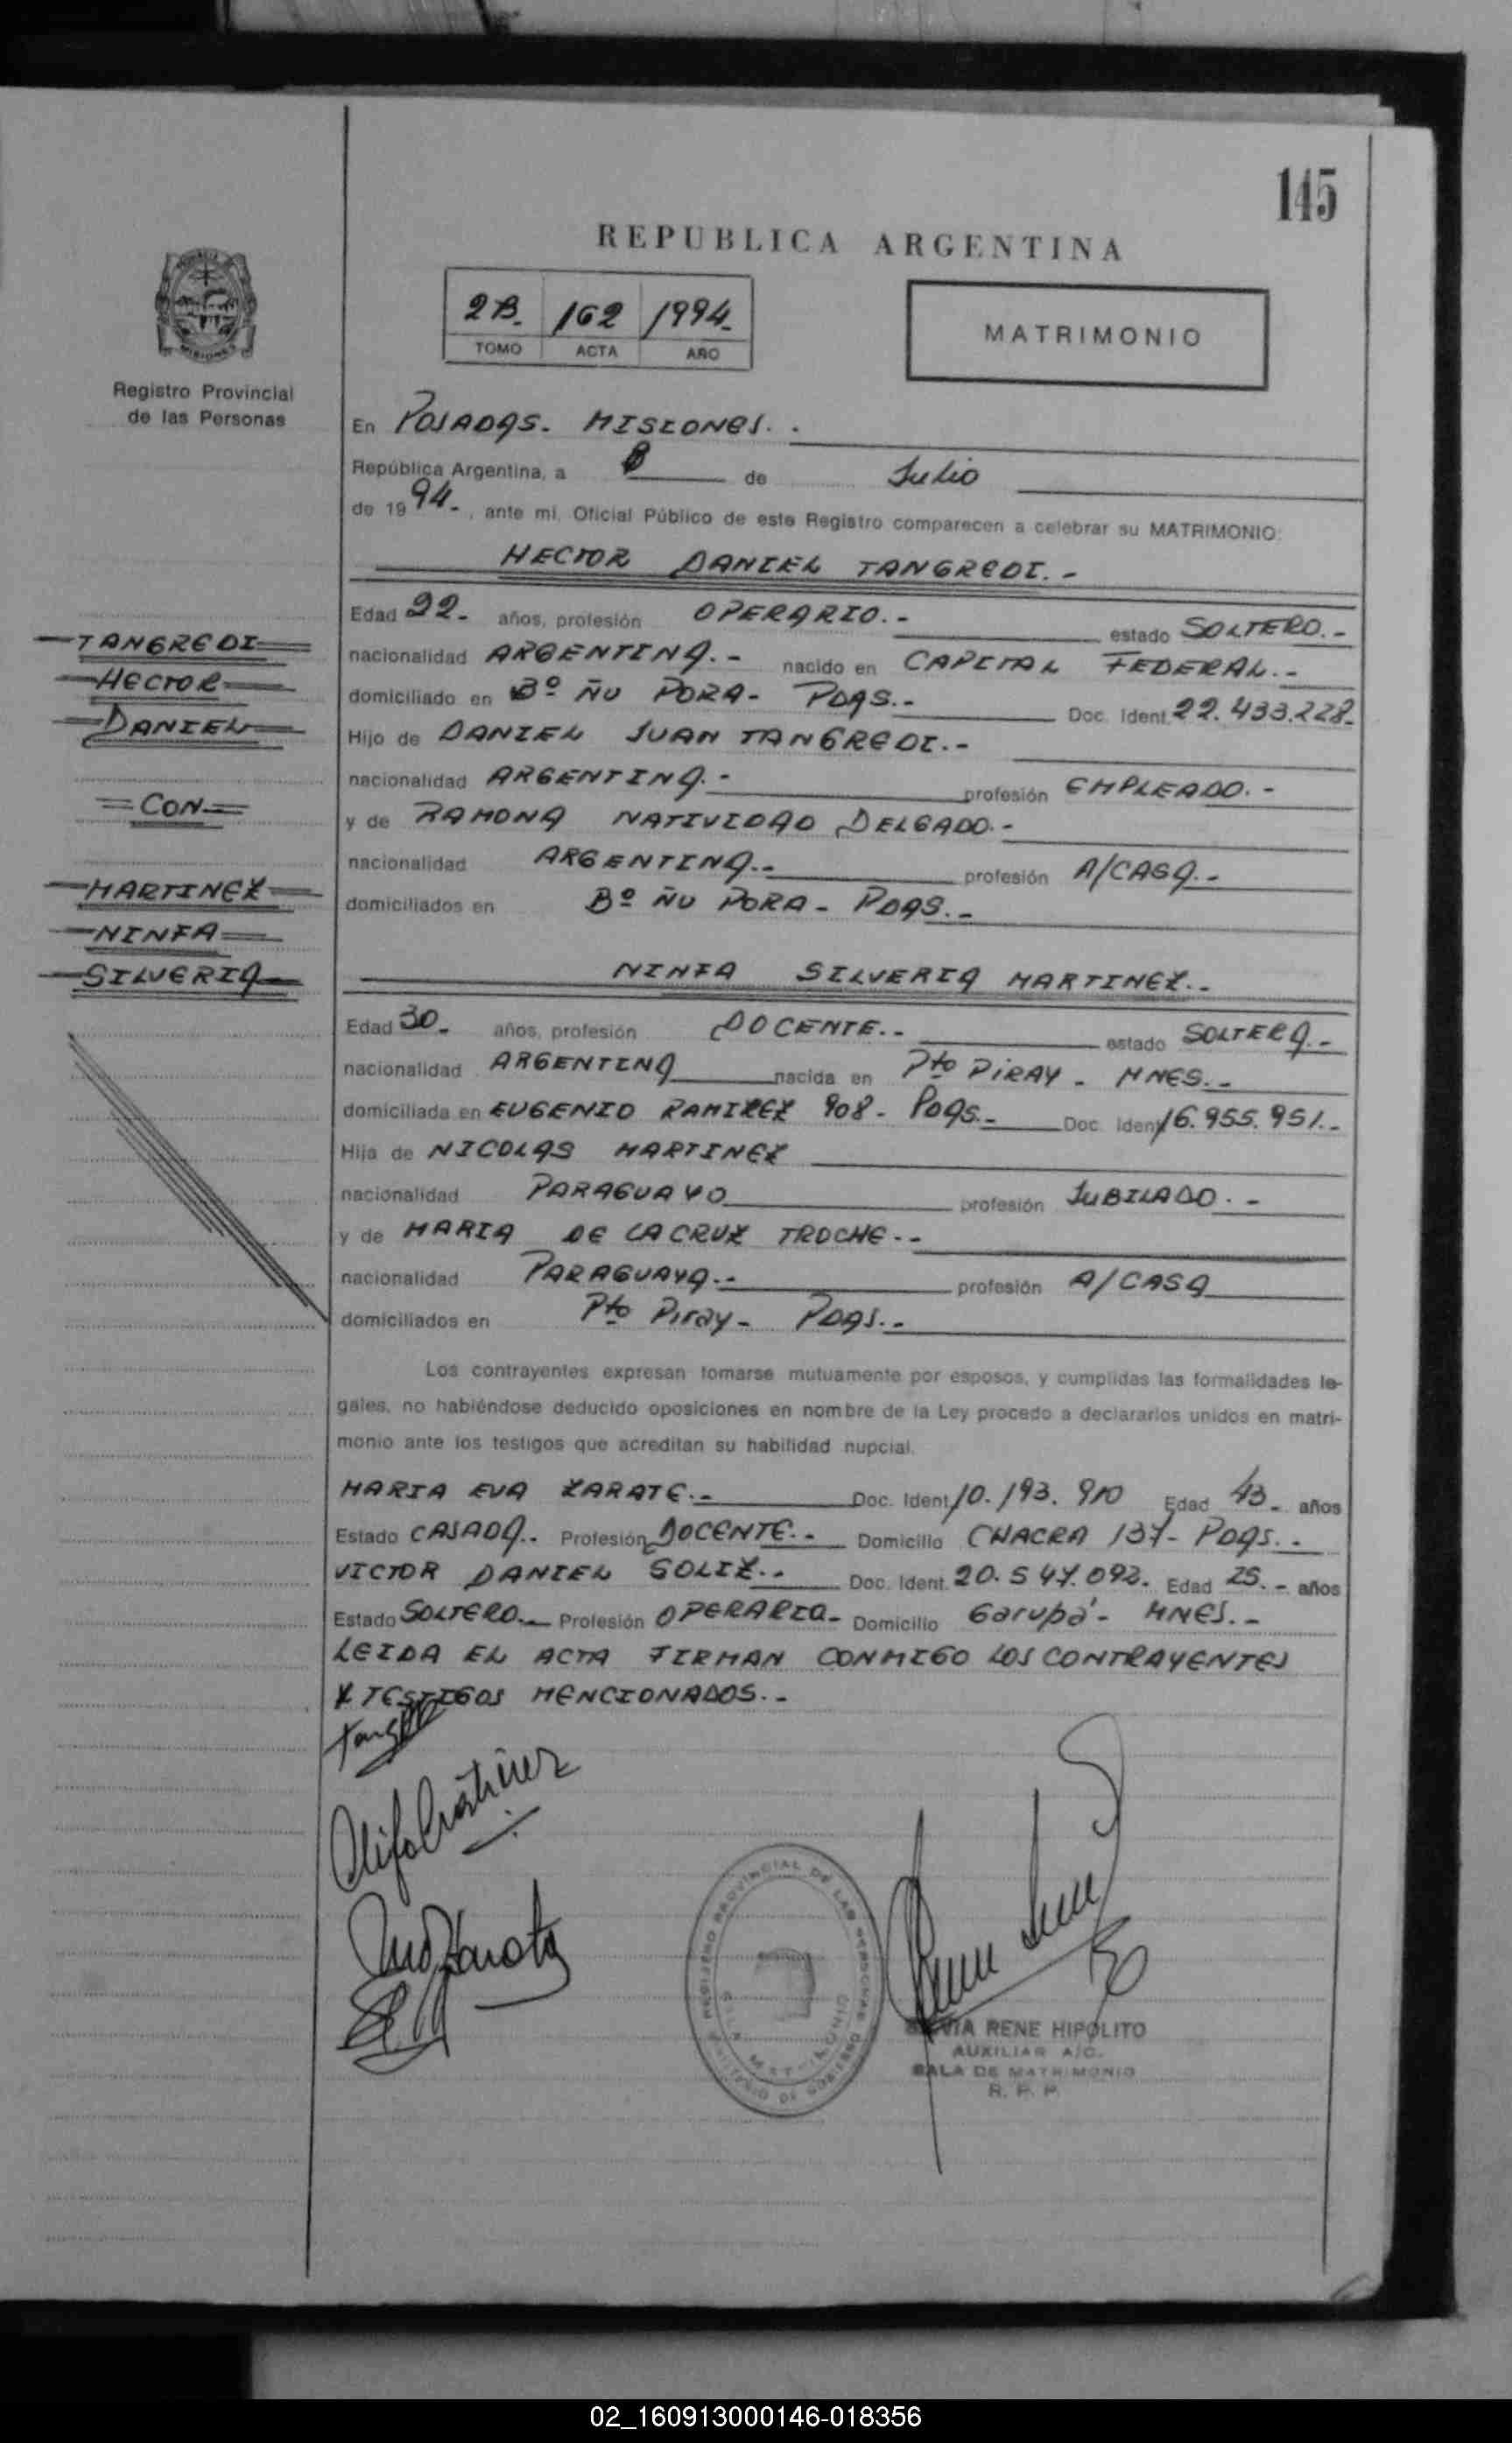 145
REPUBLICA ARGENTINA
2B. 162 1994.
TOMO ACTA AÑO
MATRIMONIO
Registro Provincial
de las Personas
En POSADAS. MISIONES. .
República Argentina, a 8 de Julio
de 1994-, ante mi, Oficial Público de este Registro comparecen a celebrar su MATRIMONIO:
HECTOR DANIEL TANGREDI.-
Edad 22- años, profesión OPERARIO.- estado SOLTERO.-
TANGREDI
nacionalidad ARGENTINA.- nacido en CAPITAL FEDERAL.-
HECTOR
domiciliado en Bº ÑU PORA- PDAS.- Doc. Ident. 22.433.228-
DANIEL
Hijo de DANIEL JUAN TANGREDI.-
nacionalidad ARGENTINA.- profesión EMPLEADO.-
=CON=
y de RAMONA NATIVIDAD DELGADO.-
nacionalidad ARGENTINA.- profesión A/CASA.-
MARTINEZ
domiciliados en Bº ÑU PORA- PDAS.-
NINFA
SILVERIA
NINFA SILVERIA MARTINEZ.-
Edad 30- años, profesión DOCENTE.- estado SOLTERA.-
nacionalidad ARGENTINA nacida en Pto PIRAY - MNES.-
domiciliada en EUGENIO RAMIREZ 908- PDAS.- Doc. Ident 16.955.951.-
Hija de NICOLAS MARTINEZ
nacionalidad PARAGUAYO profesión JUBILADO.-
y de MARIA DE LA CRUZ TROCHE.-
nacionalidad PARAGUAYA.- profesión A/CASA
domiciliados en Pto Piray- PDAS.-
Los contrayentes expresan tomarse mutuamente por esposos, y cumplidas las formalidades le-
gales, no habiéndose deducido oposiciones en nombre de la Ley procedo a declararlos unidos en matri-
monio ante los testigos que acreditan su habilidad nupcial.
MARIA EVA ZARATE.- Doc. Ident. 10.193.910 Edad 43- años
Estado CASADA.- Profesión DOCENTE.- Domicilio CHACRA 137- PDAS.-
VICTOR DANIEL SOLIZ.- Doc. Ident. 20.547.092. Edad 25.- años
Estado SOLTERO.- Profesión OPERARIO- Domicilio Garupá- MNES.-
LEIDA EL ACTA FIRMAN CONMIGO LOS CONTRAYENTES
Y TESTIGOS MENCIONADOS.-
REGISTRO PROVINCIAL DE LAS PERSONAS
SILVIA RENE HIPOLITO
AUXILIAR A/C.
SALA DE MATRIMONIO
R. P. P.
02_160913000146-018356